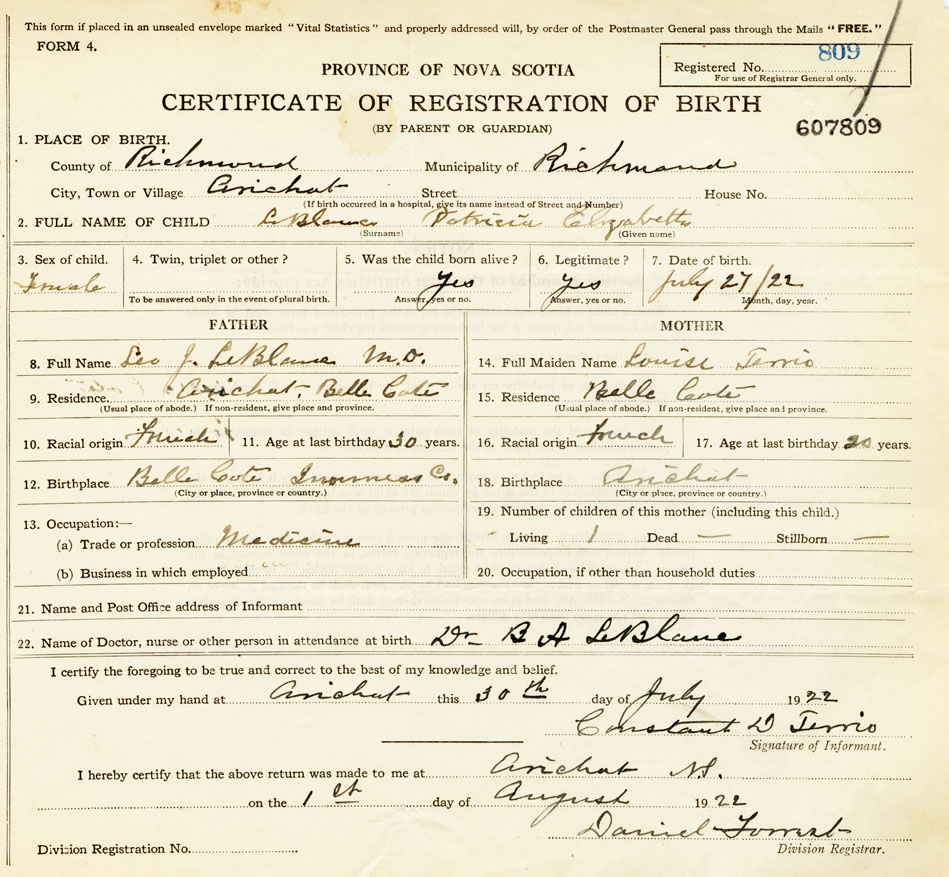 This form if placed in an unsealed envelope marked "Vital Statistics" and properly addressed will, by order of the Postmaster General pass through the Mails "FREE."
FORM 4.
809
Registered No.
For use of Registrar General only.
PROVINCE OF NOVA SCOTIA
CERTIFICATE OF REGISTRATION OF BIRTH
(BY PARENT OR GUARDIAN)
607809
1. PLACE OF BIRTH.
County of Richmond Municipality of Richmond
City, Town or Village Arichat Street House No.
(If birth occurred in a hospital, give its name instead of Street and Number)
2. FULL NAME OF CHILD LeBlanc Patricia Elizabeth
(Surname) (Given name)
3. Sex of child. 4. Twin, triplet or other? 5. Was the child born alive? 6. Legitimate? 7. Date of birth.
Female Yes Yes July 27/22
To be answered only in the event of plural birth. Answer, yes or no. Answer, yes or no. Month, day, year.
FATHER
8. Full Name Leo J. LeBlanc M.D.
9. Residence. Arichat, Belle Cote
(Usual place of abode.) If non-resident, give place and province.
10. Racial origin French 11. Age at last birthday 30 years.
12. Birthplace Belle Cote Inverness Co.
(City or place, province or country.)
13. Occupation:—
(a) Trade or profession Medicine
(b) Business in which employed
MOTHER
14. Full Maiden Name Louise Terrio
15. Residence Belle Cote
(Usual place of abode.) If non-resident, give place and province.
16. Racial origin French 17. Age at last birthday 20 years.
18. Birthplace Arichat
(City or place, province or country.)
19. Number of children of this mother (including this child.)
Living 1 Dead — Stillborn —
20. Occupation, if other than household duties
21. Name and Post Office address of Informant
22. Name of Doctor, nurse or other person in attendance at birth Dr B A LeBlanc
I certify the foregoing to be true and correct to the best of my knowledge and belief.
Given under my hand at Arichat this 30th day of July 1922
Constant D Terrio
Signature of Informant.
I hereby certify that the above return was made to me at Arichat N.S.
on the 1st day of August 1922
Daniel Forrest
Division Registrar.
Division Registration No.